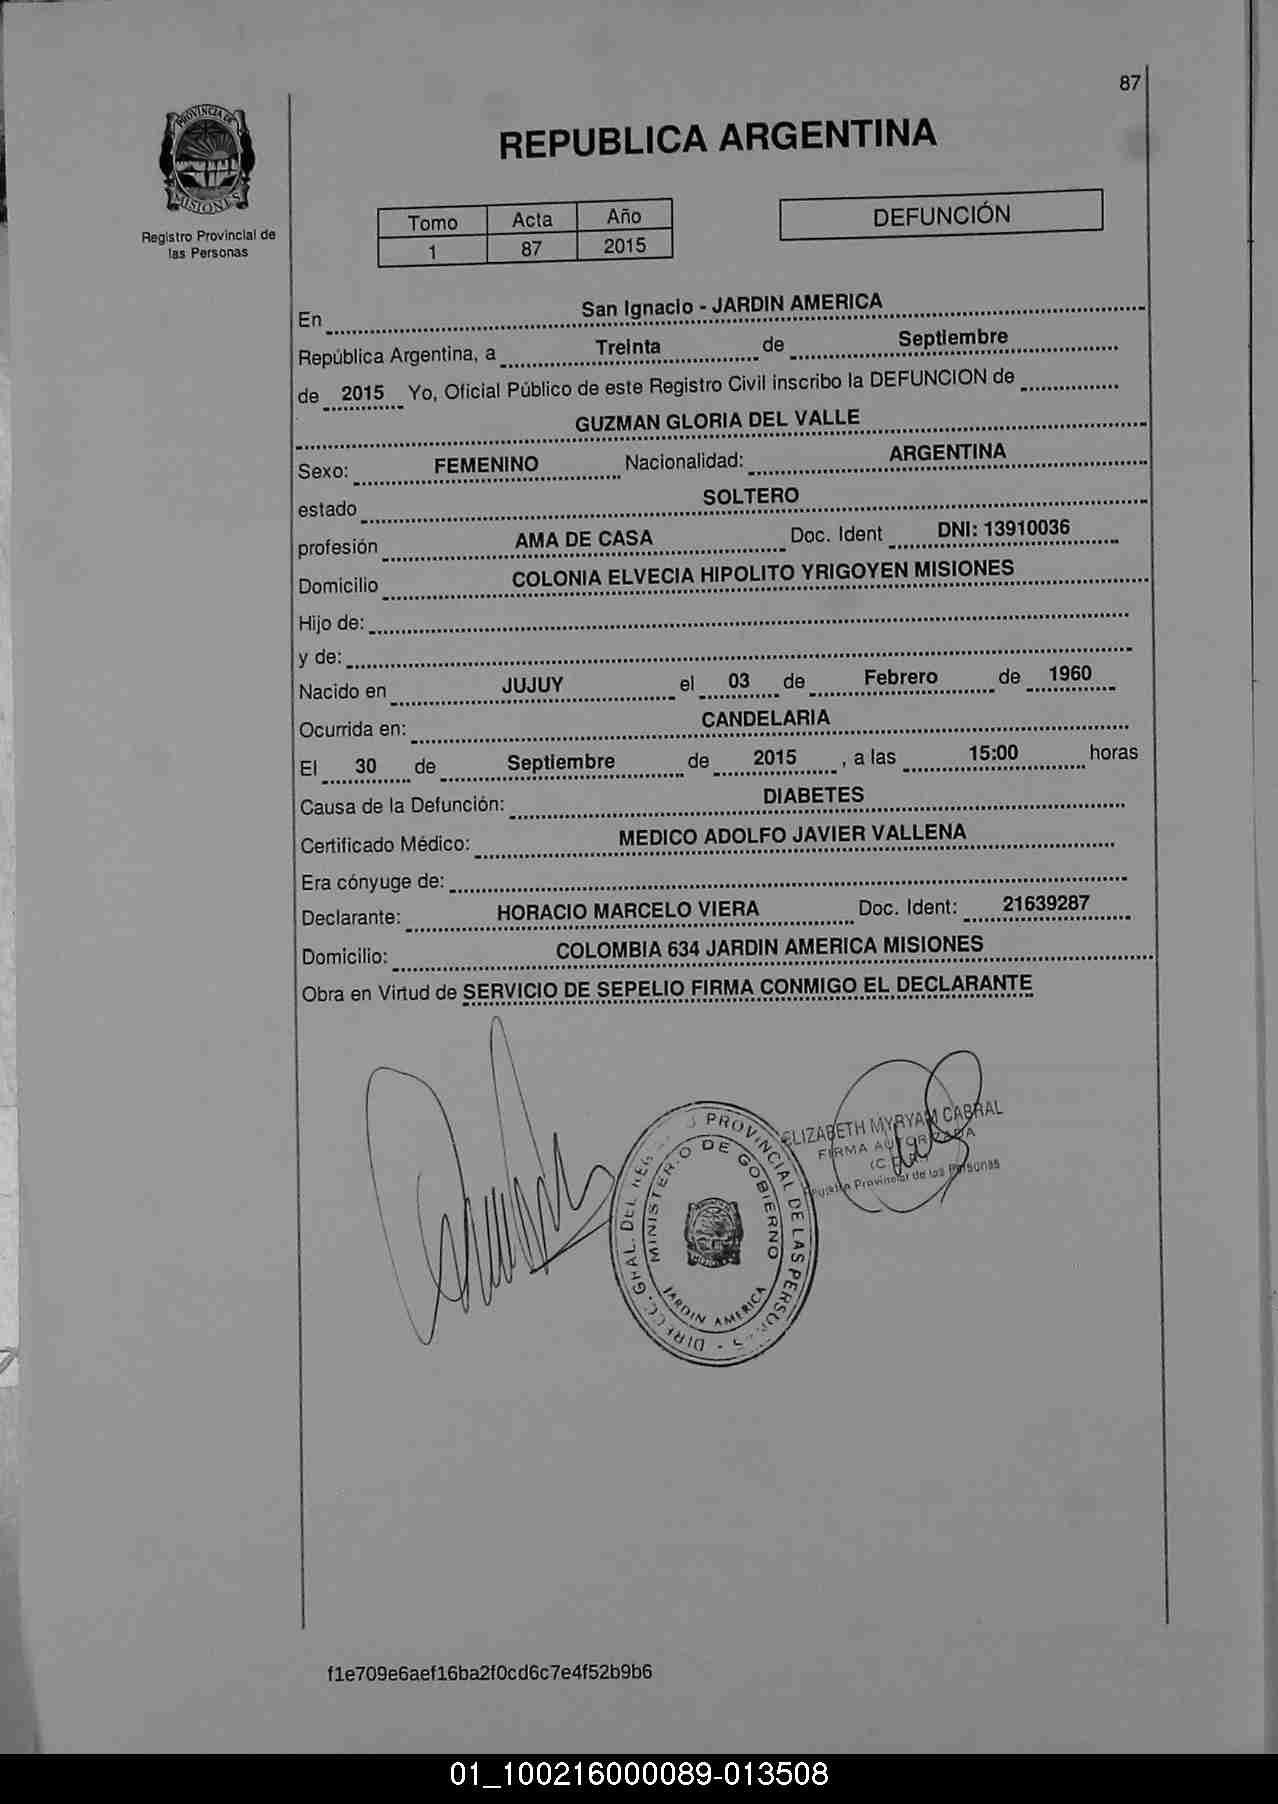 87
PROVINCIA DE
MISIONES
Registro Provincial de
las Personas
REPUBLICA ARGENTINA
Tomo Acta Año
1 87 2015
DEFUNCIÓN
En San Ignacio - JARDIN AMERICA
República Argentina, a Treinta de Septiembre
de 2015 Yo, Oficial Público de este Registro Civil inscribo la DEFUNCION de
GUZMAN GLORIA DEL VALLE
Sexo: FEMENINO Nacionalidad: ARGENTINA
estado SOLTERO
profesión AMA DE CASA Doc. Ident DNI: 13910036
Domicilio COLONIA ELVECIA HIPOLITO YRIGOYEN MISIONES
Hijo de:
y de:
Nacido en JUJUY el 03 de Febrero de 1960
Ocurrida en: CANDELARIA
El 30 de Septiembre de 2015 , a las 15:00 horas
Causa de la Defunción: DIABETES
Certificado Médico: MEDICO ADOLFO JAVIER VALLENA
Era cónyuge de:
Declarante: HORACIO MARCELO VIERA Doc. Ident: 21639287
Domicilio: COLOMBIA 634 JARDIN AMERICA MISIONES
Obra en Virtud de SERVICIO DE SEPELIO FIRMA CONMIGO EL DECLARANTE
PROVINCIAL DE LAS
MINISTERIO DE GOBIERNO
JARDIN AMERICA
ELIZABETH MYRYAM CABRAL
FIRMA AUTORIZADA
Provincial de las Personas
f1e709e6aef16ba2f0cd6c7e4f52b9b6
01_100216000089-013508